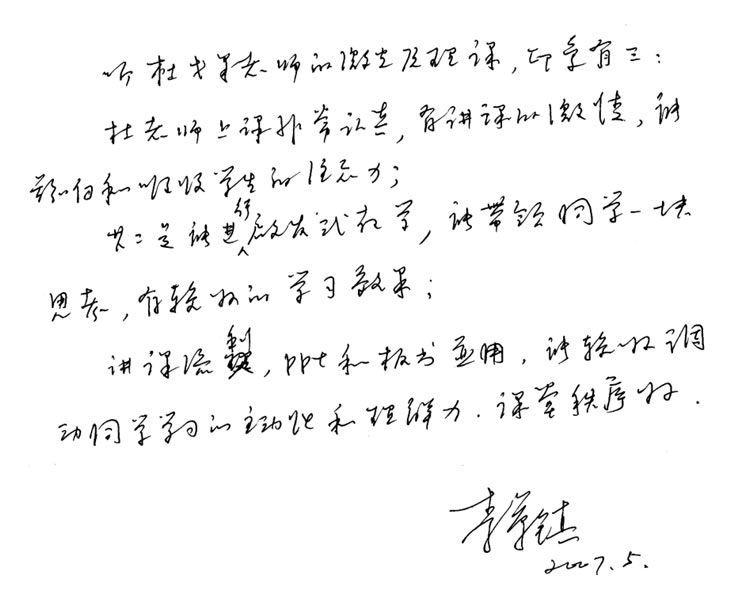 听杜老师的微生原理课，印象有三：
杜老师上课非常认真，有讲课的激情，能
和吸收学生的注意力；
其二是能进行启发式教学，能带领同学一块
思考，有较好的学习效果；
讲课流利，ppt和板书并用，能较好调
动同学学习的主动性和理解力．课堂秩序好．
2007.5.